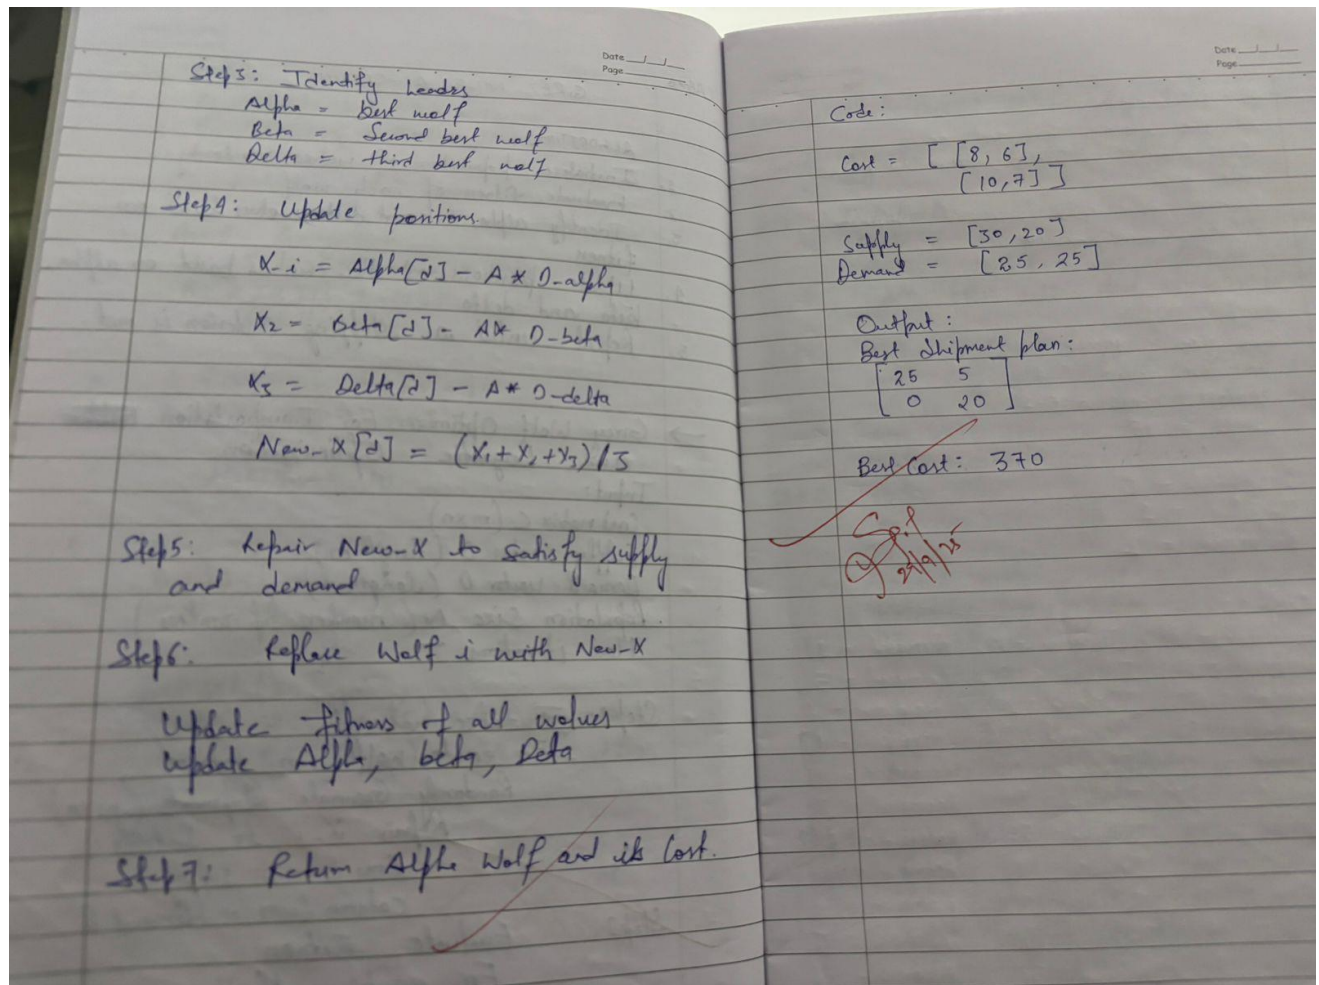 Date
Page
Step 3: Identify Leadrs
Alpha = best wolf
Beta = Second best wolf
Delta = third best wolf
Step 4: Update positions
X-i = Alpha[d] - A * D-alpha
X2 = Beta[d] - A* D-beta
X3 = Delta[d] - A* D-delta
New-X[d] = (X1+X2+X3)/3
Step 5: Repair New-X to satisfy supply
and demand
Step 6: Replace Wolf i with New-X
Update fitness of all wolves
Update Alpha, beta, Deta
Step 7: Return Alpha Wolf and its Cost.
Date
Page
Code:
Cost = [ [8, 6],
[10,7] ]
Supply = [30,20]
Demand = [25, 25]
Output:
Best Shipment plan:
[ 25 5
0 20 ]
Best Cost: 370